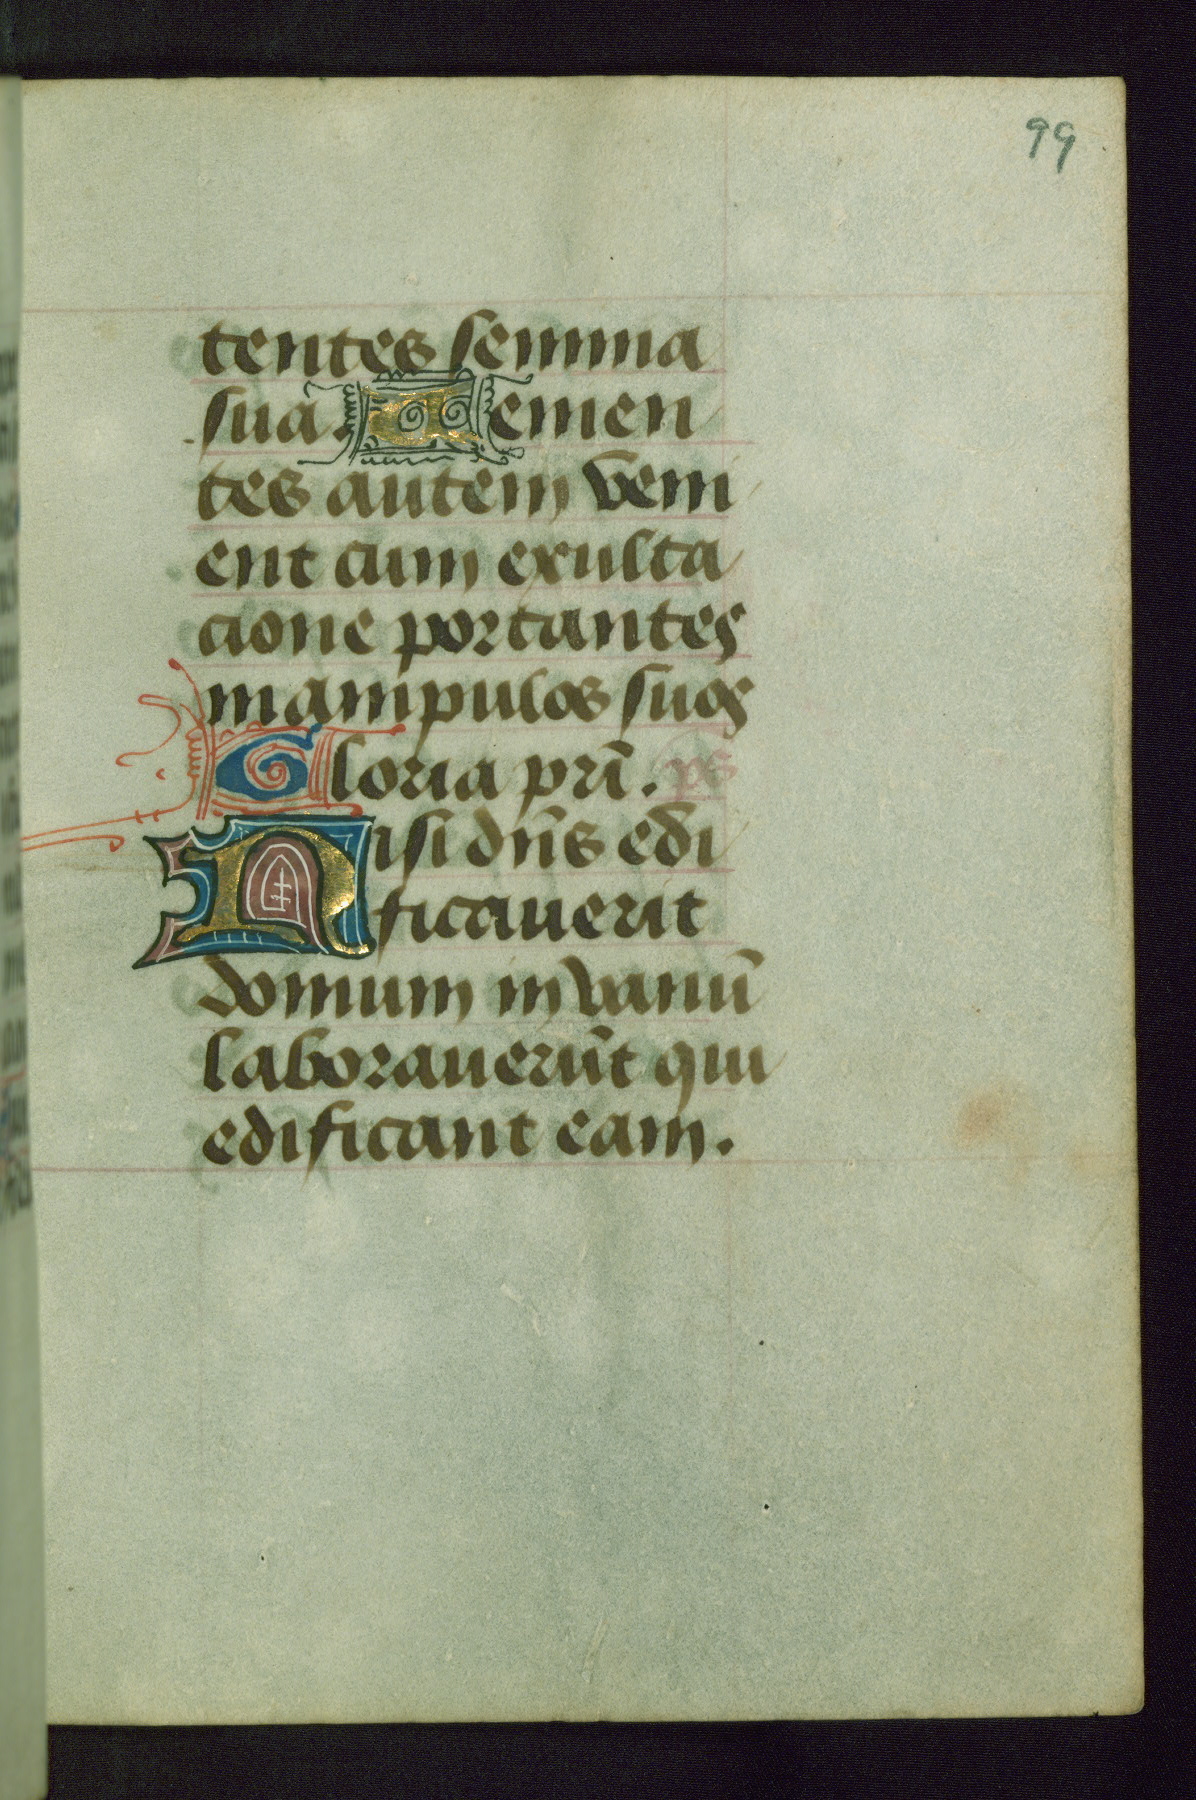 99
tentes semina
sua. Uemen
tes autem veni
ent cum exulta
cione portantes
manipulos suos
Gloria pr̄i. ps
Nisi dn̄s edi
ficauerit
domum in vanū
laborauerūt qui
edificant eam.